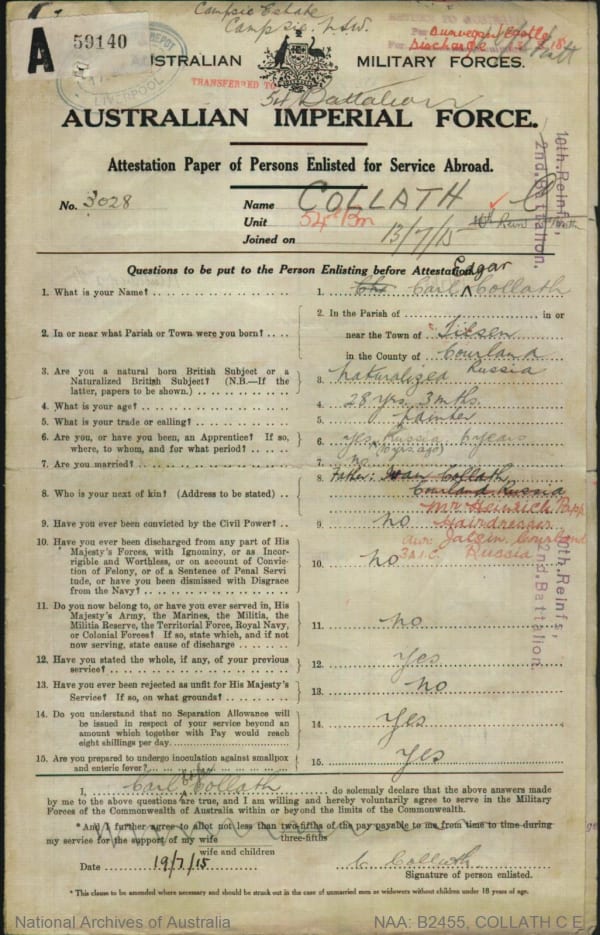 Campsie Estate
Campsie. NSW.
A 59140
DEPOT
LIVERPOOL
RETURN TO AUSTRALIA
Per Dunvegan Castle
For Discharge
AUSTRALIAN MILITARY FORCES.
TRANSFERRED TO
54 Battalion
AUSTRALIAN IMPERIAL FORCE.
Attestation Paper of Persons Enlisted for Service Abroad.
No. 3028 Name COLLATH C
Unit 54 Bn
Joined on 13/7/15
10th. Reinfs,
2nd. Battalion.
Questions to be put to the Person Enlisting before Attestation.
1. What is your Name? 1. Chs Carl Edgar Collath
2. In or near what Parish or Town were you born? 2. In the Parish of in or
near the Town of Tilsen
in the County of Courland
Russia
3. Are you a natural born British Subject or a
Naturalized British Subject? (N.B.—If the
latter, papers to be shown.) 3. naturalized
4. What is your age? 4. 28 yrs. 3 mths.
5. What is your trade or calling? 5. painter
6. Are you, or have you been, an Apprentice? If so,
where, to whom, and for what period? 6. yes, Russia 6 years
(6 yrs ago)
7. Are you married? 7. no
8. Who is your next of kin? (Address to be stated) 8. Father: Ivan Collath
Courland Russia
Mr Heinrich Papp
Courland
3 A.I.C. Russia
9. Have you ever been convicted by the Civil Power? 9. no
10. Have you ever been discharged from any part of His
Majesty's Forces, with Ignominy, or as Incor-
rigible and Worthless, or on account of Convic-
tion of Felony, or of a Sentence of Penal Servi-
tude, or have you been dismissed with Disgrace
from the Navy? 10. no
10th. Reinfs,
2nd. Battalion
11. Do you now belong to, or have you ever served in, His
Majesty's Army, the Marines, the Militia, the
Militia Reserve, the Territorial Force, Royal Navy,
or Colonial Forces? If so, state which, and if not
now serving, state cause of discharge 11. no
12. Have you stated the whole, if any, of your previous
service? 12. Yes
13. Have you ever been rejected as unfit for His Majesty's
Service? If so, on what grounds? 13. no
14. Do you understand that no Separation Allowance will
be issued in respect of your service beyond an
amount which together with Pay would reach
eight shillings per day. 14. Yes
15. Are you prepared to undergo inoculation against smallpox
and enteric fever? 15. Yes
I, Carl Edgar Collath do solemnly declare that the above answers made
by me to the above questions are true, and I am willing and hereby voluntarily agree to serve in the Military
Forces of the Commonwealth of Australia within or beyond the limits of the Commonwealth.
*And I further agree to allot not less than two-fifths of the pay payable to me from time to time during
three-fifths
my service for the support of my wife
wife and children
Date 19/7/15 C Collath
Signature of person enlisted.
* This clause to be amended where necessary and should be struck out in the case of unmarried men or widowers without children under 18 years of age.
National Archives of Australia NAA: B2455, COLLATH C E